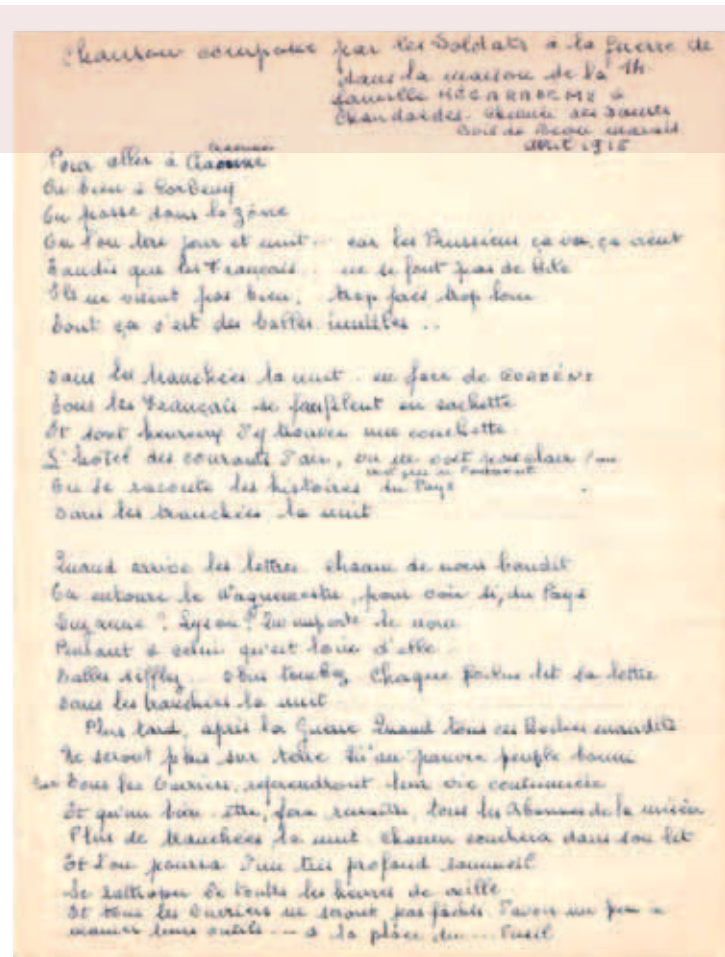 Chanson composée par les Soldats à la Guerre de 14
dans la maison de la
famille
Chaudardes. Chemin des Dames
Bois de Beau Marais
avril 1915
Pour aller à Craonne
Ou bien à Corbeny
On passe dans la zône
Où l'on tire jour et nuit.. car les Prussiens ça va, ça vient
Tandis que les Français.. ne se font pas de bile
Ils ne visent pas bien, trop près trop loin
Tout ça c'est des balles inutiles..
Dans les tranchées la nuit en face de CORBENY
Tous les Français se faufilent en cachette
Et sont heureux d'y trouver une couchette
L'hôtel des courants d'air, on ne voit pas clair
On se raconte les histoires du Pays
Dans les tranchées la nuit
Quand arrive les lettres chacun de nous bondit
On entoure le Vaguemestre, pour voir si, du Pays
Suzanne? Lyson? Qu'importe le nom
Pensant à celui qu'est loin d'elle
Balles sifflez. Obus tombez Chaque poilu lit sa lettre
Dans les tranchées la nuit
Plus tard, après la Guerre Quand tous ces Boches maudits
Ne seront plus sur terre Qu'un pauvre peuple banni
Tous les Ouvriers, reprendront leur vie coutumière
Et qu'un bien-être, fera renaître, tous les Abonnés de la misère
Plus de tranchées la nuit chacun couchera dans son lit
Et l'on pourra d'un très profond sommeil
Se rattraper de toutes les heures de veille
Et tous les Ouvriers ne seront pas fâchés d'avoir un peu à
manier leurs outils... à la place du... fusil